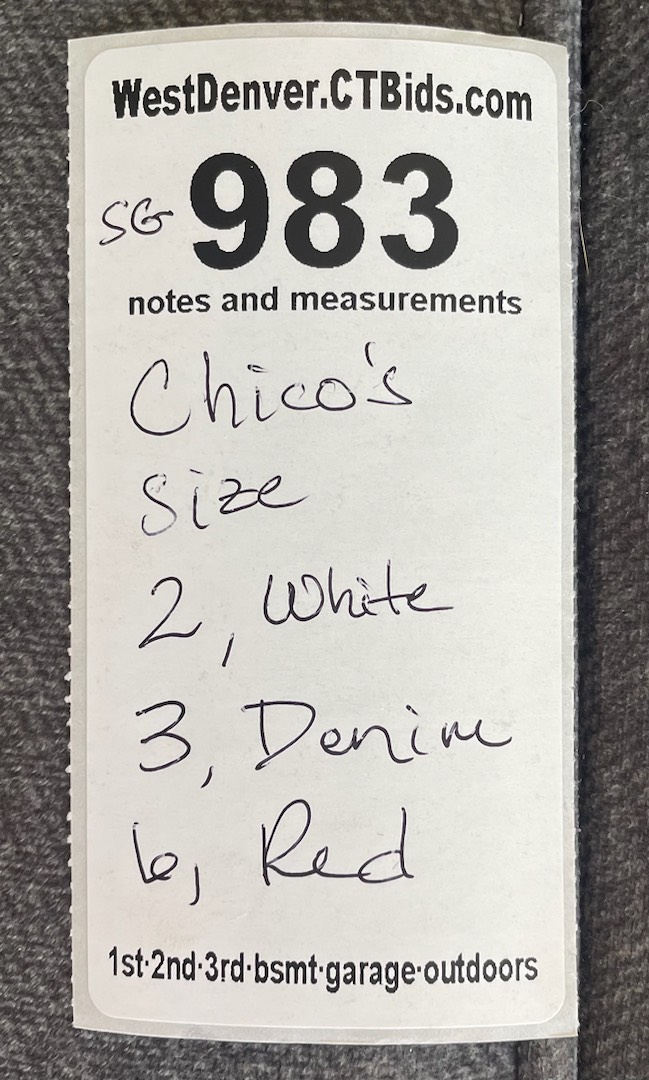 WestDenver.CTBids.com
SG 983
notes and measurements
Chico's
Size
2, White
3, Denim
6, Red
1st·2nd·3rd·bsmt·garage·outdoors